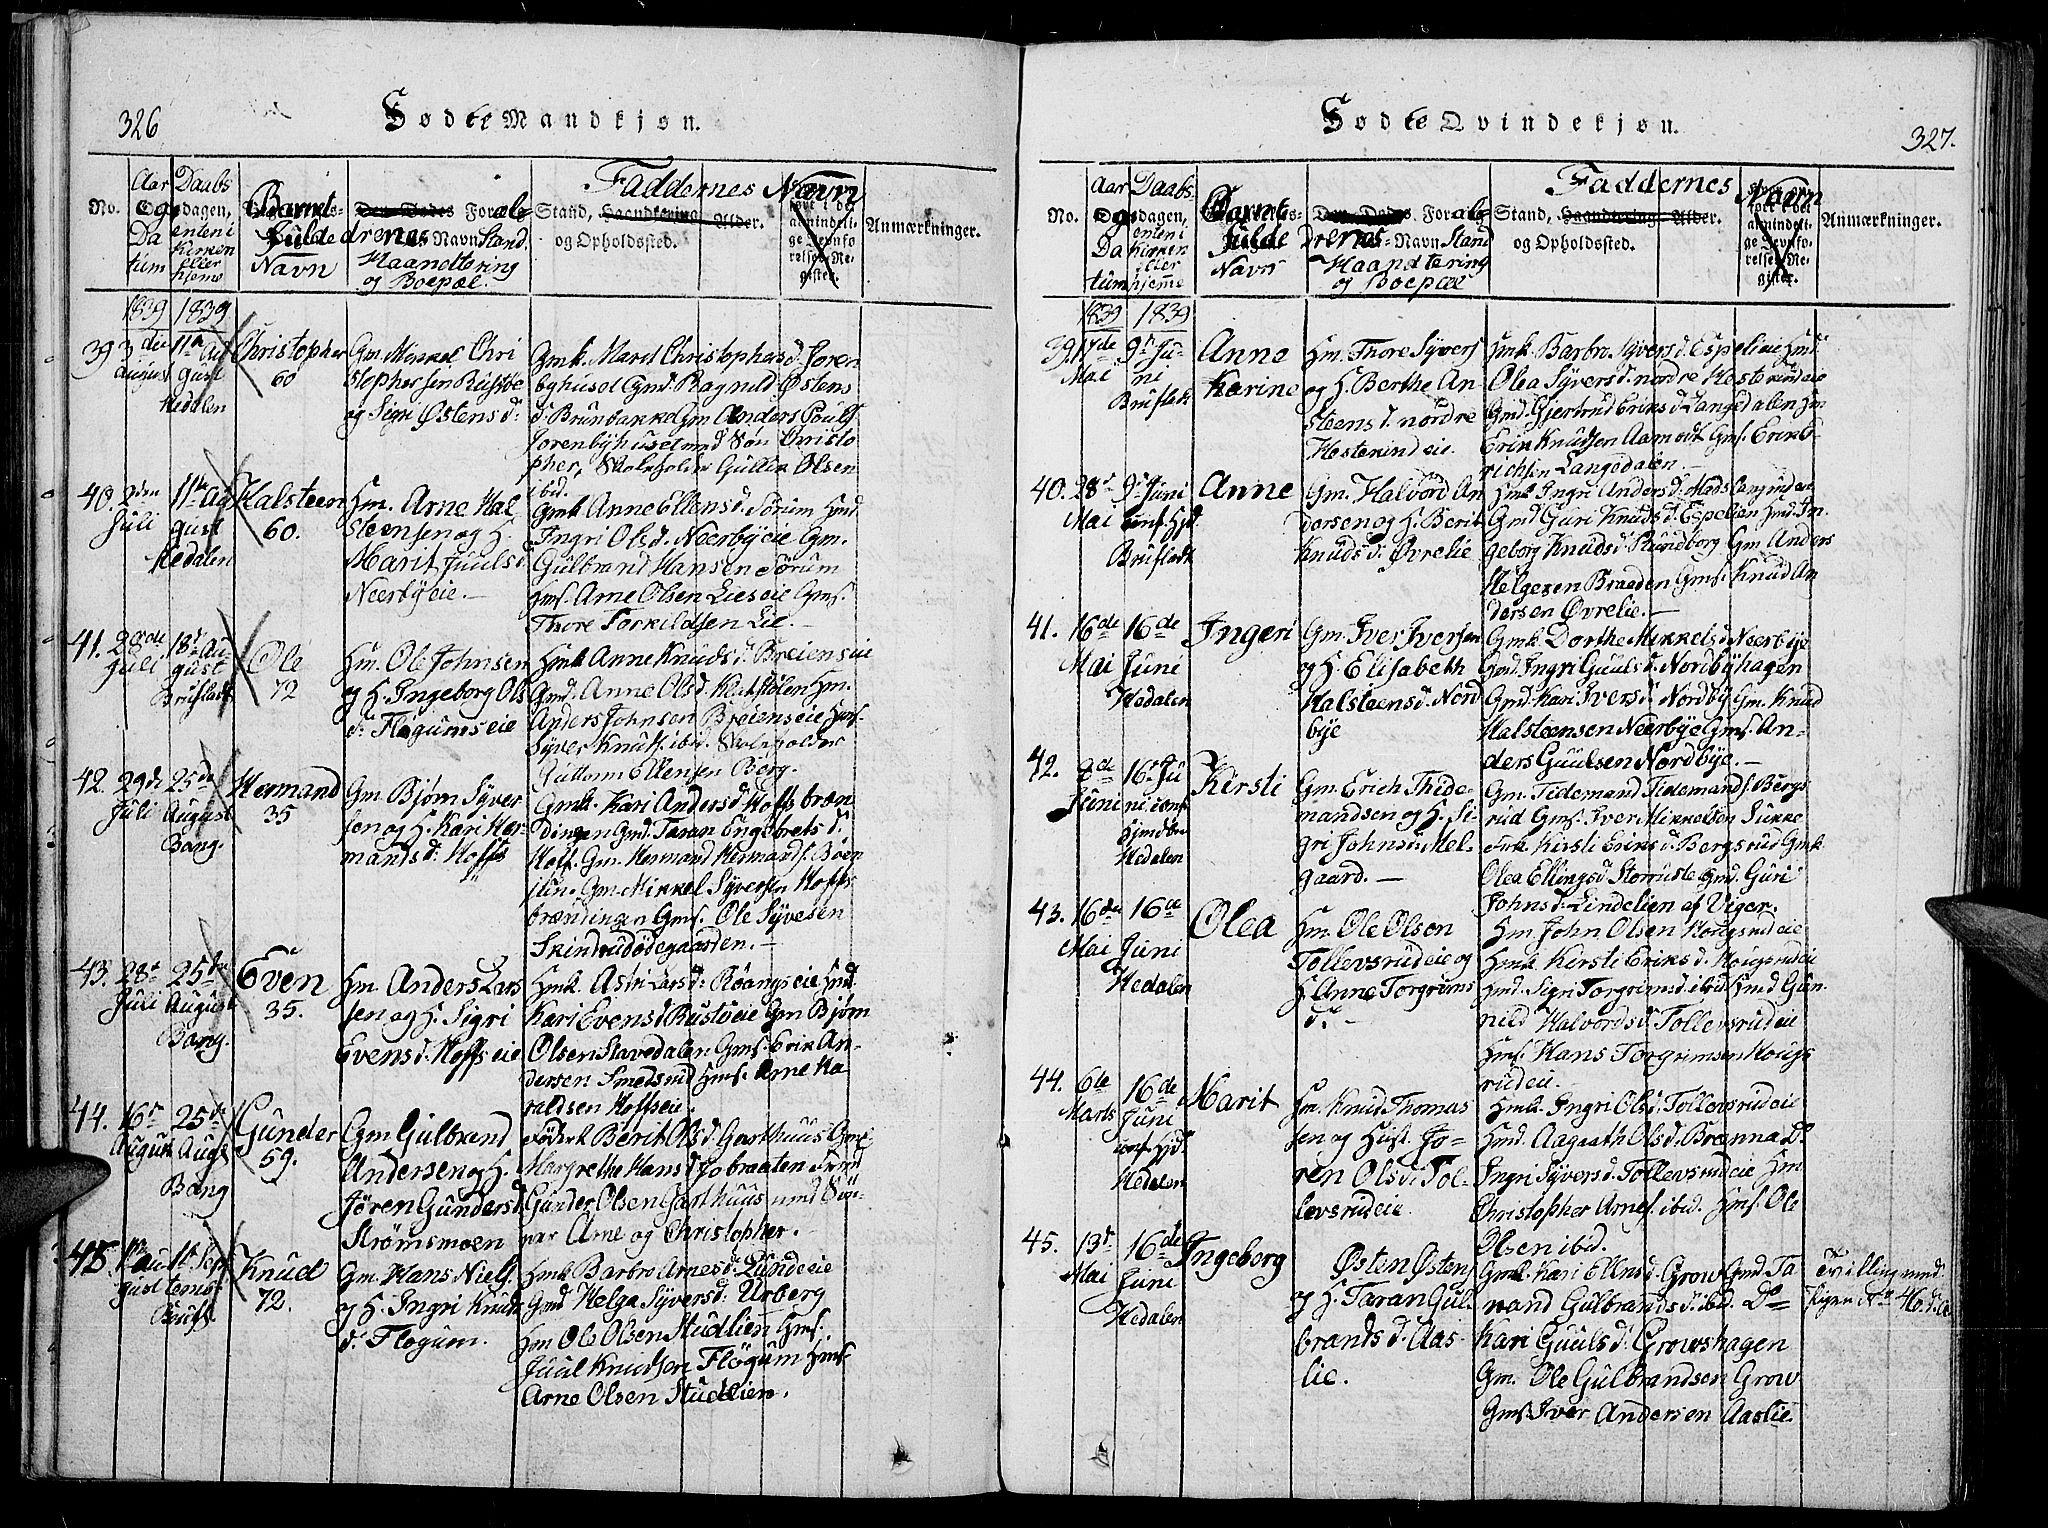 326
Født Mandkjøn.
No.
Aar
Og
Da
tum
Daabs
dagen,
enten i
Kirken
eller
hjeme
Barnets
fulde
Navn
Foræl-
drenes Navn Stand
Haandtering
og Boepæl.
Faddernes Navn
Stand, Haandtering Alder.
og Opholdssted.
Anmærkninger.
1839 1839
39 3die August
11te August Hedalen
Christopher 60
Gm. Mikkel Chri
stophersen Rustøe
og Sigri Østensd:
Gmk. Marit Christophersd. Joren
byhuset Gmd. Ragnild Østens
d. Brunbakke Gm Anders Pouls
Jorenbyhuset med Søn Christo
pher, Skoleholder Gullik Olsen
ibid.
40. 2den Juli
11te August Hedalen
Halsteen 60.
Hm. Arne Hal
steensen og H.
Marit Juulsd
Neerbyeie.
Gmk. Anne Ellensd. Sørum Hmd.
Ingri Olsd. Neerbyeie Gm.
Gulbrand Hansen Sørum
Hmf. Arne Olsen Lieseie Gmf.
Thore Torkildsen Lie.
41. 28de Juli
18de August Brufladt
Ole 72
Hm. Ole Johnsen
og H. Ingeborg Ols
d: Fløgumseie
Hmk Anne Knudsd. Breienseie
Gmd. Anne Olsd. Klatstølen Hm.
Anders Johnsen Breienseie Hmf.
Syver Knuts. ibid. Skoleholder
Guttorm Ellensen Berg.
42. 29de Juli
25de August Bang.
Hermand 35
Gm. Bjørn Syver
sen og H. Kari Her-
mandsd: Hoffs
Gmk. Kari Andersd Hoffsbræn
dingen Gmd. Taran Engebretsd.
Hoff. Gm. Hermand Hermands. Bøen
Gm. Mikkel Syversen Hoffs
brændingen Gmf. Ole Syvesen
Skindrudødegaarden.
43. 28de Juli
25de August Bang.
Even 35.
Hm. Anders Lars
sen og H. Sigri
Evensd. Hoffseie
Hmk. Astri Larsd: Røangseie Hmd.
Kari Evensd Rustøeie Gm Bjørn
Olsen Stavedalen Gmf. Erik An-
dersen Smedsrud Hmf. Arne Ha
raldsen Hoffseie.
44. 16de August
25de Augst Bang
Gunder 59.
Gm. Gulbrand
Andersen og H.
Jøren Gundersd.
Strømsmoen
Berit Olsd. Garthuus
Margrethe Hansd Jobraaten
Gunder Olsen Garthuus med Søn-
ner Arne og Christopher.
45 1te August
1te September Brufl.
Knud 72.
Gm. Hans Niels.
og H. Ingri Knuds
d. Fløgum.
Hmk Barbro Arnesd. Lundeeie
Gmd Helga Syversd. Urberg
Hm Ols Olsen Studlien Hmf.
Juul Knudsen Fløgum Hmf.
Arne Olsen Studlien.
327.
Født Qvindekjøn.
No.
Aar
og
Da
tum
Daabs-
dagen,
enten i
Kirken
eller
hjemme
Barnets
fulde
Navn
Foræl
drenes Navn Stand
Haandtering
og Boepæl
Faddernes Navn
Stand, Haandtering Alder.
og Opholdssted.
Anmærkninger.
1839 1839
39 17de Mai
9de Juni Bruflat
Anne
Karine
Hm. Thore Syvers
og H. Berthe An-
steensd. nordre
Hesterindeie.
Hmk Barbro Syversd. Espelieie Hmd.
Olea Syversd. nordre Hesterindeie
Gmd. Gjertrud Eriksd. Langedalen Hm
Erik Knudsen Aamodt Gmf. Erik E-
richsen Langedalen.
40. 28de Mai
9de Juni conf. Hjd. Brufladt
Anne
Gm. Halvord An
dersen og H. Berit
Knudsd. Øvrelie
Hmk Ingri Andersd.
Gmd Guri Knudsd. Espelien Hmd. In
geborg Knudsd. Gm. Anders
Helgesen Braaden Gmf. Knud An
dersen Øvrelie.
41. 16de Mai
16de Juni Hedalen
Ingeri
Gm. Iver Iversen
og H. Elisabeth
Halsteensd. Nord
bye
Gmk. Dorthe Mikkelsd. Neerbye
Gmd. Ingri Guulsd. Nordbyhagen
Gmd. Kari Iversd. Nordby Gm. Knud
Halsteensen Neerbye Gmf. An-
ders Guulsen Nordbye.
42. 2de Juni
16de Juni conf. Hjmdøbn Hedalen
Kirsti
Gm. Erich Thide-
mandsen og H. Si-
gri Johnsd. Mel-
gaard.
Gm. Tidemand Tidemands. Bergs
rud Gmf. Iver Mikkelsen Sukke
Kirsti Eriksd. Bergsrud Gmk.
Olea Ellingsd Storruste Gmd. Guri
Johnsd. Lindelien af Viger.
43. 16de Mai
16de Juni Hedalen
Olea
Hm. Ole Olson
Tollevsrudeie og
H. Anne Torgrims
d.
Hm John Olsen Hougsrudeie
Hmk. Kirsti Eriksd. Hougsrudeie
Hmd. Sigri Torgrimsd. ibid. Hmd Gun-
nild Halvordsd. Tollevsrudeie
Hmf. Hans Torgrimsen Hougs
rudeie.
44. 6te Marts
16de Juni conf. Hjd. Hedalen
Marit
Hm. Knud Thomas
sen og Hust. Jo-
ren Olsd. Tol-
levsrudeie.
Hmk. Ingri Olsd. Tollevsrudeie
Hmd. Aagaath Olsd. Brænna Do
Ingri Syversd. Tollevsrudeie Hm
Christopher Arnes. ibid. Hmf. Ole
Olsen ibid.
45. 13de Mai
16de Juni Hedalen
Ingeborg
Østen Østens
og H. Taran Gul
brandsd. Aas-
lie.
Gmk. Kari Ellensd. Grow Gmd Ta
rand Gulbrandsd. ibid. Do
Kari Guulsd. Growshagen
Gm. Ole Gulbrandsen Grow
Gmf. Iver Andersen Aaslie.
Tvilling med
Pigen No 46. d. a